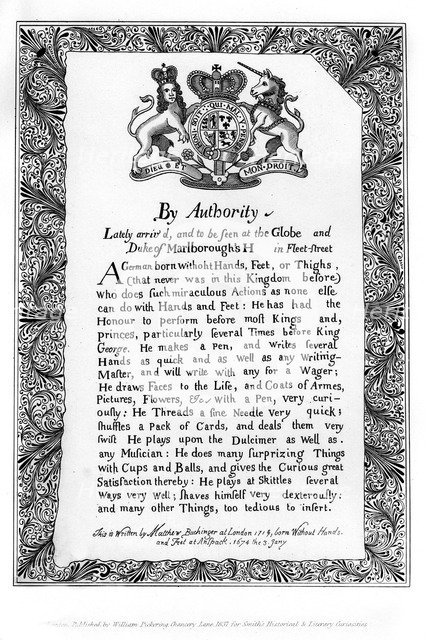 HONI SOIT QUI MAL Y PENSE
DIEU ET MON DROIT
By Authority
Lately arriv'd, and to be seen at the Globe and
Duke of Marlborough's H in Fleet-street
A German born Without Hands, Feet, or Thighs,
(that never was in this Kingdom before)
Who does ſuch miraculous Actions as none else
can do with Hands and Feet: He has had the
Honour to perform before moſt Kings and,
princes, particularly ſeveral Times before King
George. He makes a Pen, and Writes ſeveral
Hands as quick and as well as any Writing-
Master, and will write with any for a Wager;
He draws Faces to the Life, and Coats of Armes,
Pictures, Flowers, &c. with a Pen, very curi-
ouſly: He Threads a fine Needle Very quick;
ſhuffles a Pack of Cards, and deals them very
ſwift He plays upon the Dulcimer as Well as.
any Muſician: He does many ſurprizing Things
with Cups and Balls, and gives the Curious great
Satisfaction thereby: He plays at Skittles ſeveral
Ways very Well; ſhaves himſelf very dexterouſly;
and many other Things, too tedious to inſert.
This is Written by Matthew Buchinger at London born Without Hands.
and Feet at Anſpach. 1674 the 3. Jany
London, Publiſhed by William Pickering, Chancery Lane, 1837 for Smith's Historical & Literary Curiosities